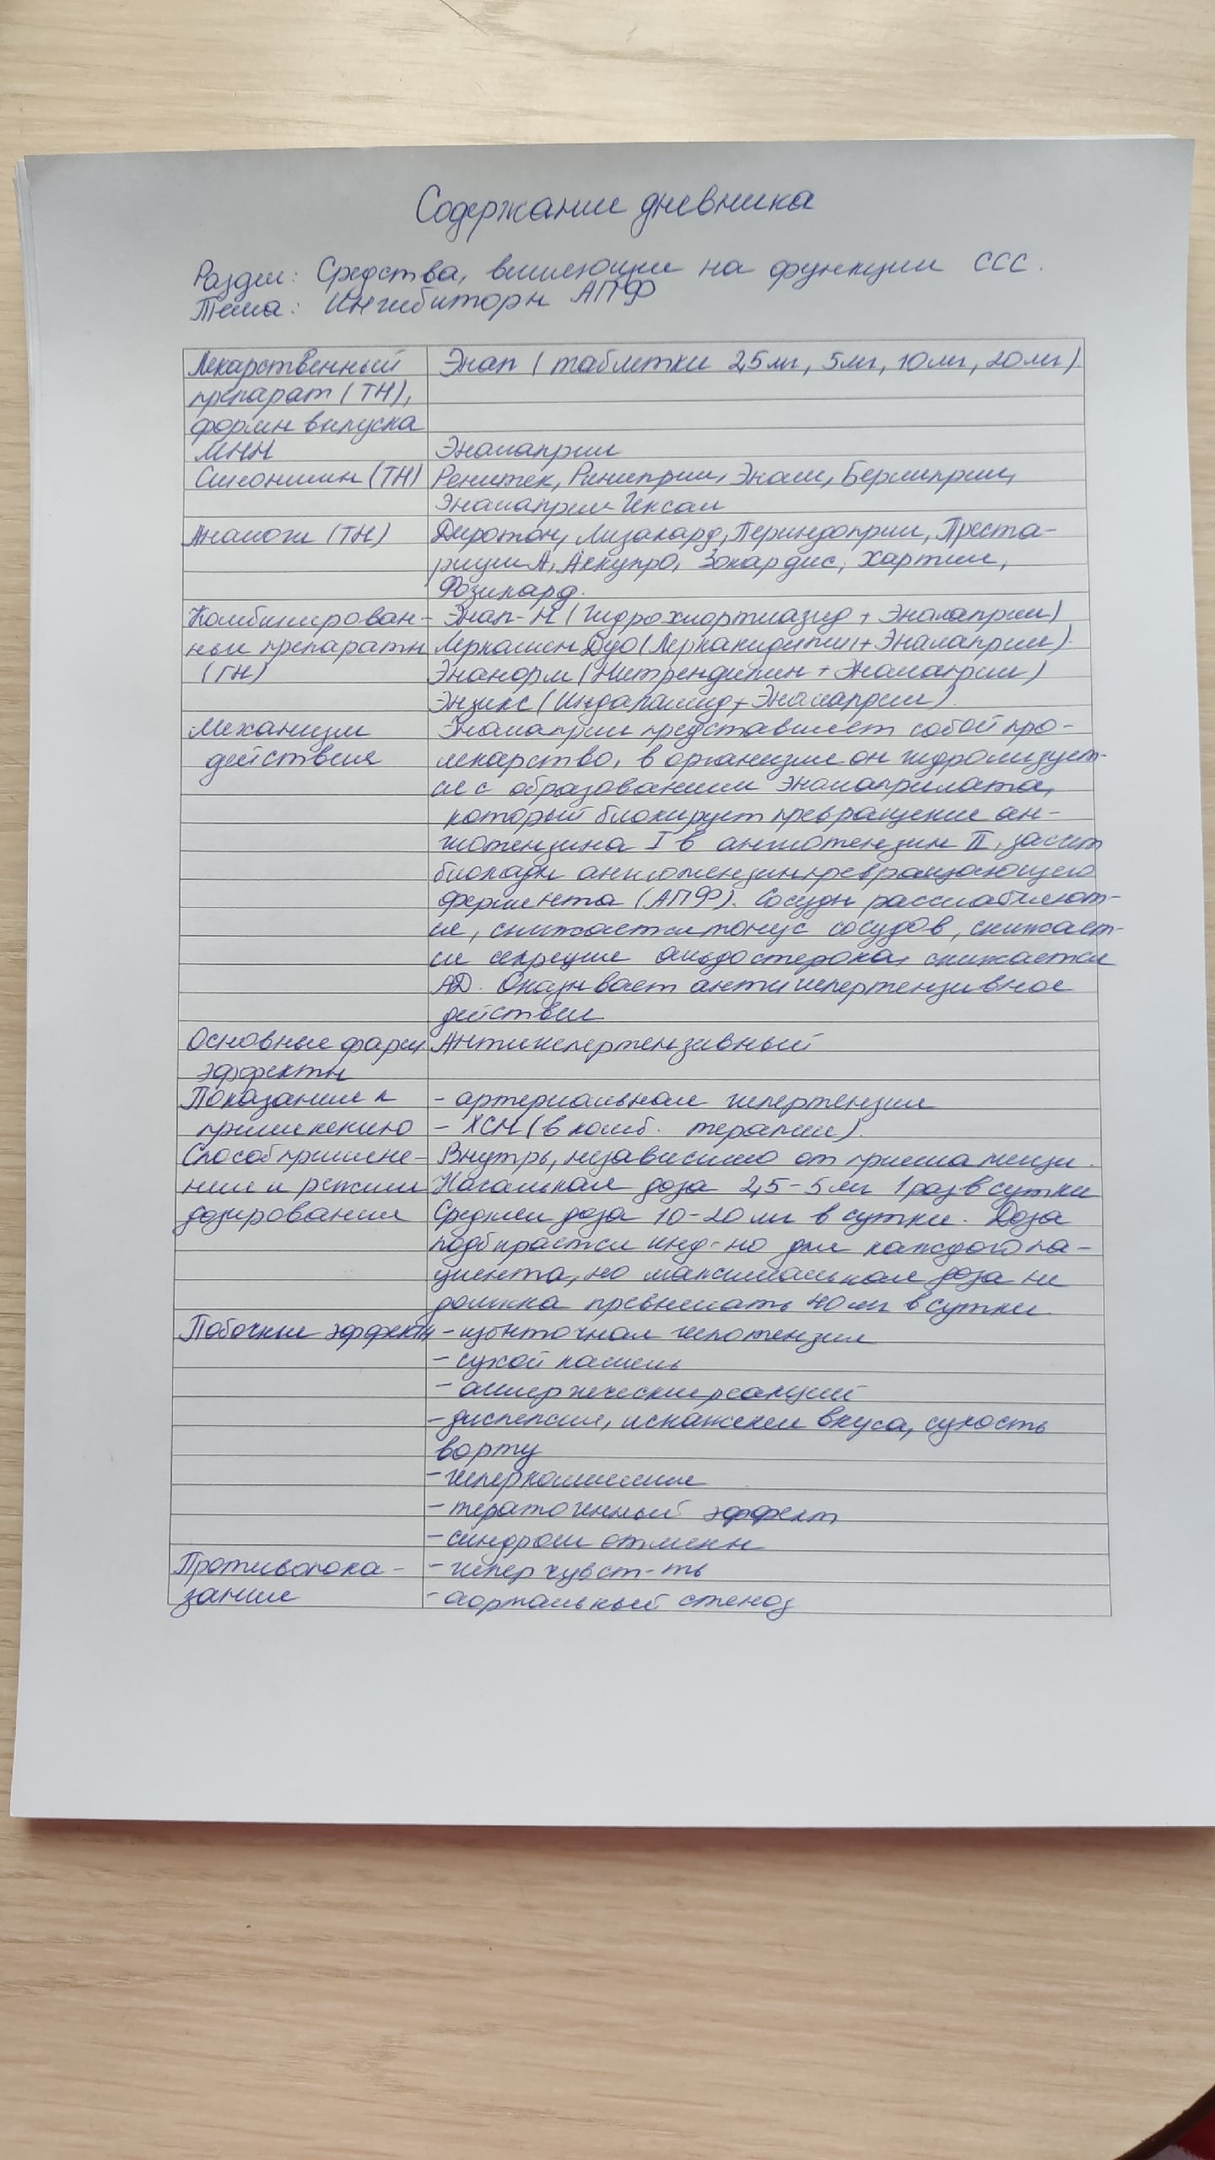 Содержание дневника
Раздел: Средства, влияющие на функции ССС.
Тема: Ингибиторы АПФ
Лекарственный Энап (таблетки 2,5мг, 5мг, 10мг, 20мг)
препарат (ТН),
формы выпуска
МНН Эналаприл
Синонимы (ТН) Ренитек, Рениприл, Энам, Берлиприл,
Эналаприл Гексал
Аналоги (ТН) Диротон, Лизакард, Периндоприл, Преста-
риум А, Аккупро, Зокардис, Хартил,
Фозикард.
Комбинирован- Энап-Н (Гидрохлортиазид + Эналаприл)
ные препараты Леркамен Дуо (Лерканидипин + Эналаприл)
(ТН) Энанорм (Нитрендипин + Эналаприл)
Энзикс (Индапамид + Эналаприл)
Механизм Эналаприл представляет собой про-
действия лекарство, в организме он гидролизует-
ся с образованием эналаприлата,
который блокирует превращение ан-
гиотензина I в ангиотензин II, засчет
блокады ангиотензинпревращающего
фермента (АПФ). Сосуды расслабляют-
ся, снижается тонус сосудов, снижает-
ся секреция альдостерона, снижается
АД. Оказывает антигипертензивное
действие
Основные фарм. Антигипертензивный
эффекты
Показания к - артериальная гипертензия
применению - ХСН (в комб. терапии).
Способ примене- Внутрь, независимо от приема пищи.
ния и режим Начальная доза 2,5-5 мг 1 раз в сутки
дозирования Средняя доза 10-20 мг в сутки. Доза
подбирается инд-но для каждого па-
циента, но максимальная доза не
должна превышать 40 мг в сутки.
Побочные эффекты - избыточная гипотензия
- сухой кашель
- аллергические реакций
- диспепсия, искажение вкуса, сухость
во рту
- гиперкалиемия
- тератогенный эффект
- синдром отмены
Противопока- - гиперчувст-ть
зания - аортальный стеноз